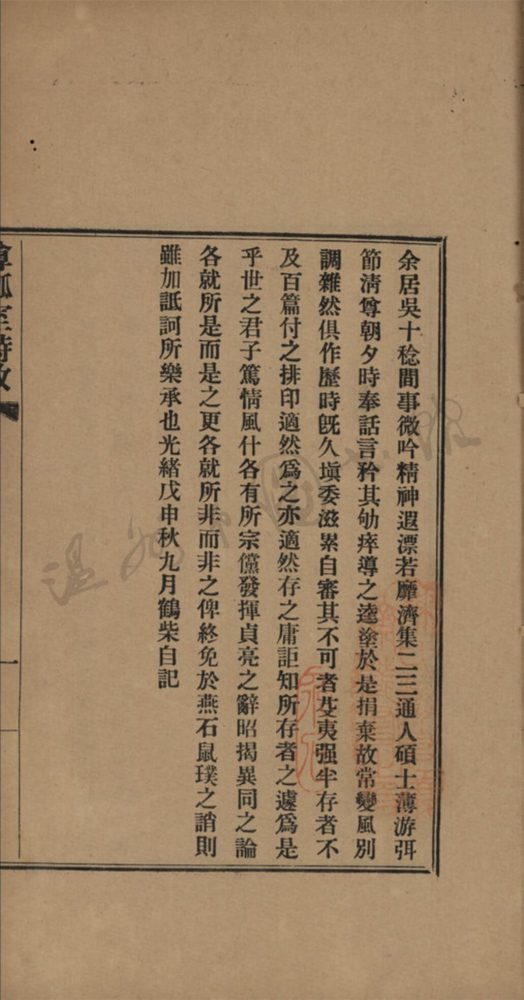 余居吳十稔間事微吟精神遐漂若靡濟集二三通人碩士薄游弭
節清尊朝夕時奉話言矜其劬瘁導之逵塗於是捐棄故常變風別
調雜然俱作歷時旣久塡委滋累自審其不可者芟夷强半存者不
及百篇付之排印適然爲之亦適然存之庸詎知所存者之遽爲是
乎世之君子篤情風什各有所宗儻發揮貞亮之辭昭揭異同之論
各就所是而是之更各就所非而非之俾終免於燕石鼠璞之誚則
雖加詆訶所樂承也光緖戊申秋九月鶴柴自記
室詩
一
溫州市圖書館